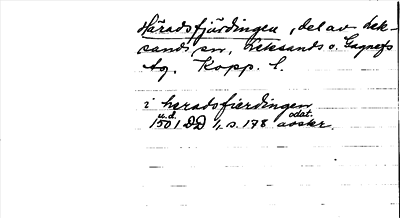 Häradsfjärdingen, del av Lek-
sands sn, Leksands o. Gagnefs
tg. Kopp. l.
i heradsfierdingen
u.d. odat.
1501 DD 1, s. 198 avskr.